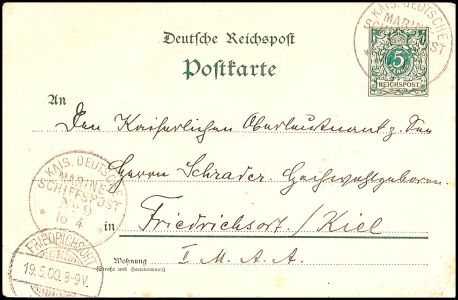 KAIS. DEUTSCHE
MARINE-
SCHIFFSPOST
Deutsche Reichspost
Postkarte
5
REICHSPOST
An
Den Kaiserlichen Oberleutnant z. See
Herrn Schrader. Hochwohlgeboren
KAIS. DEUTSCHE
MARINE-
SCHIFFSPOST
No 9
16 4
in Friedrichsort / Kiel
I M. A. A.
Wohnung
(Straße und Hausnummer)
FRIEDRICHSORT
19.5.00.8-9V.